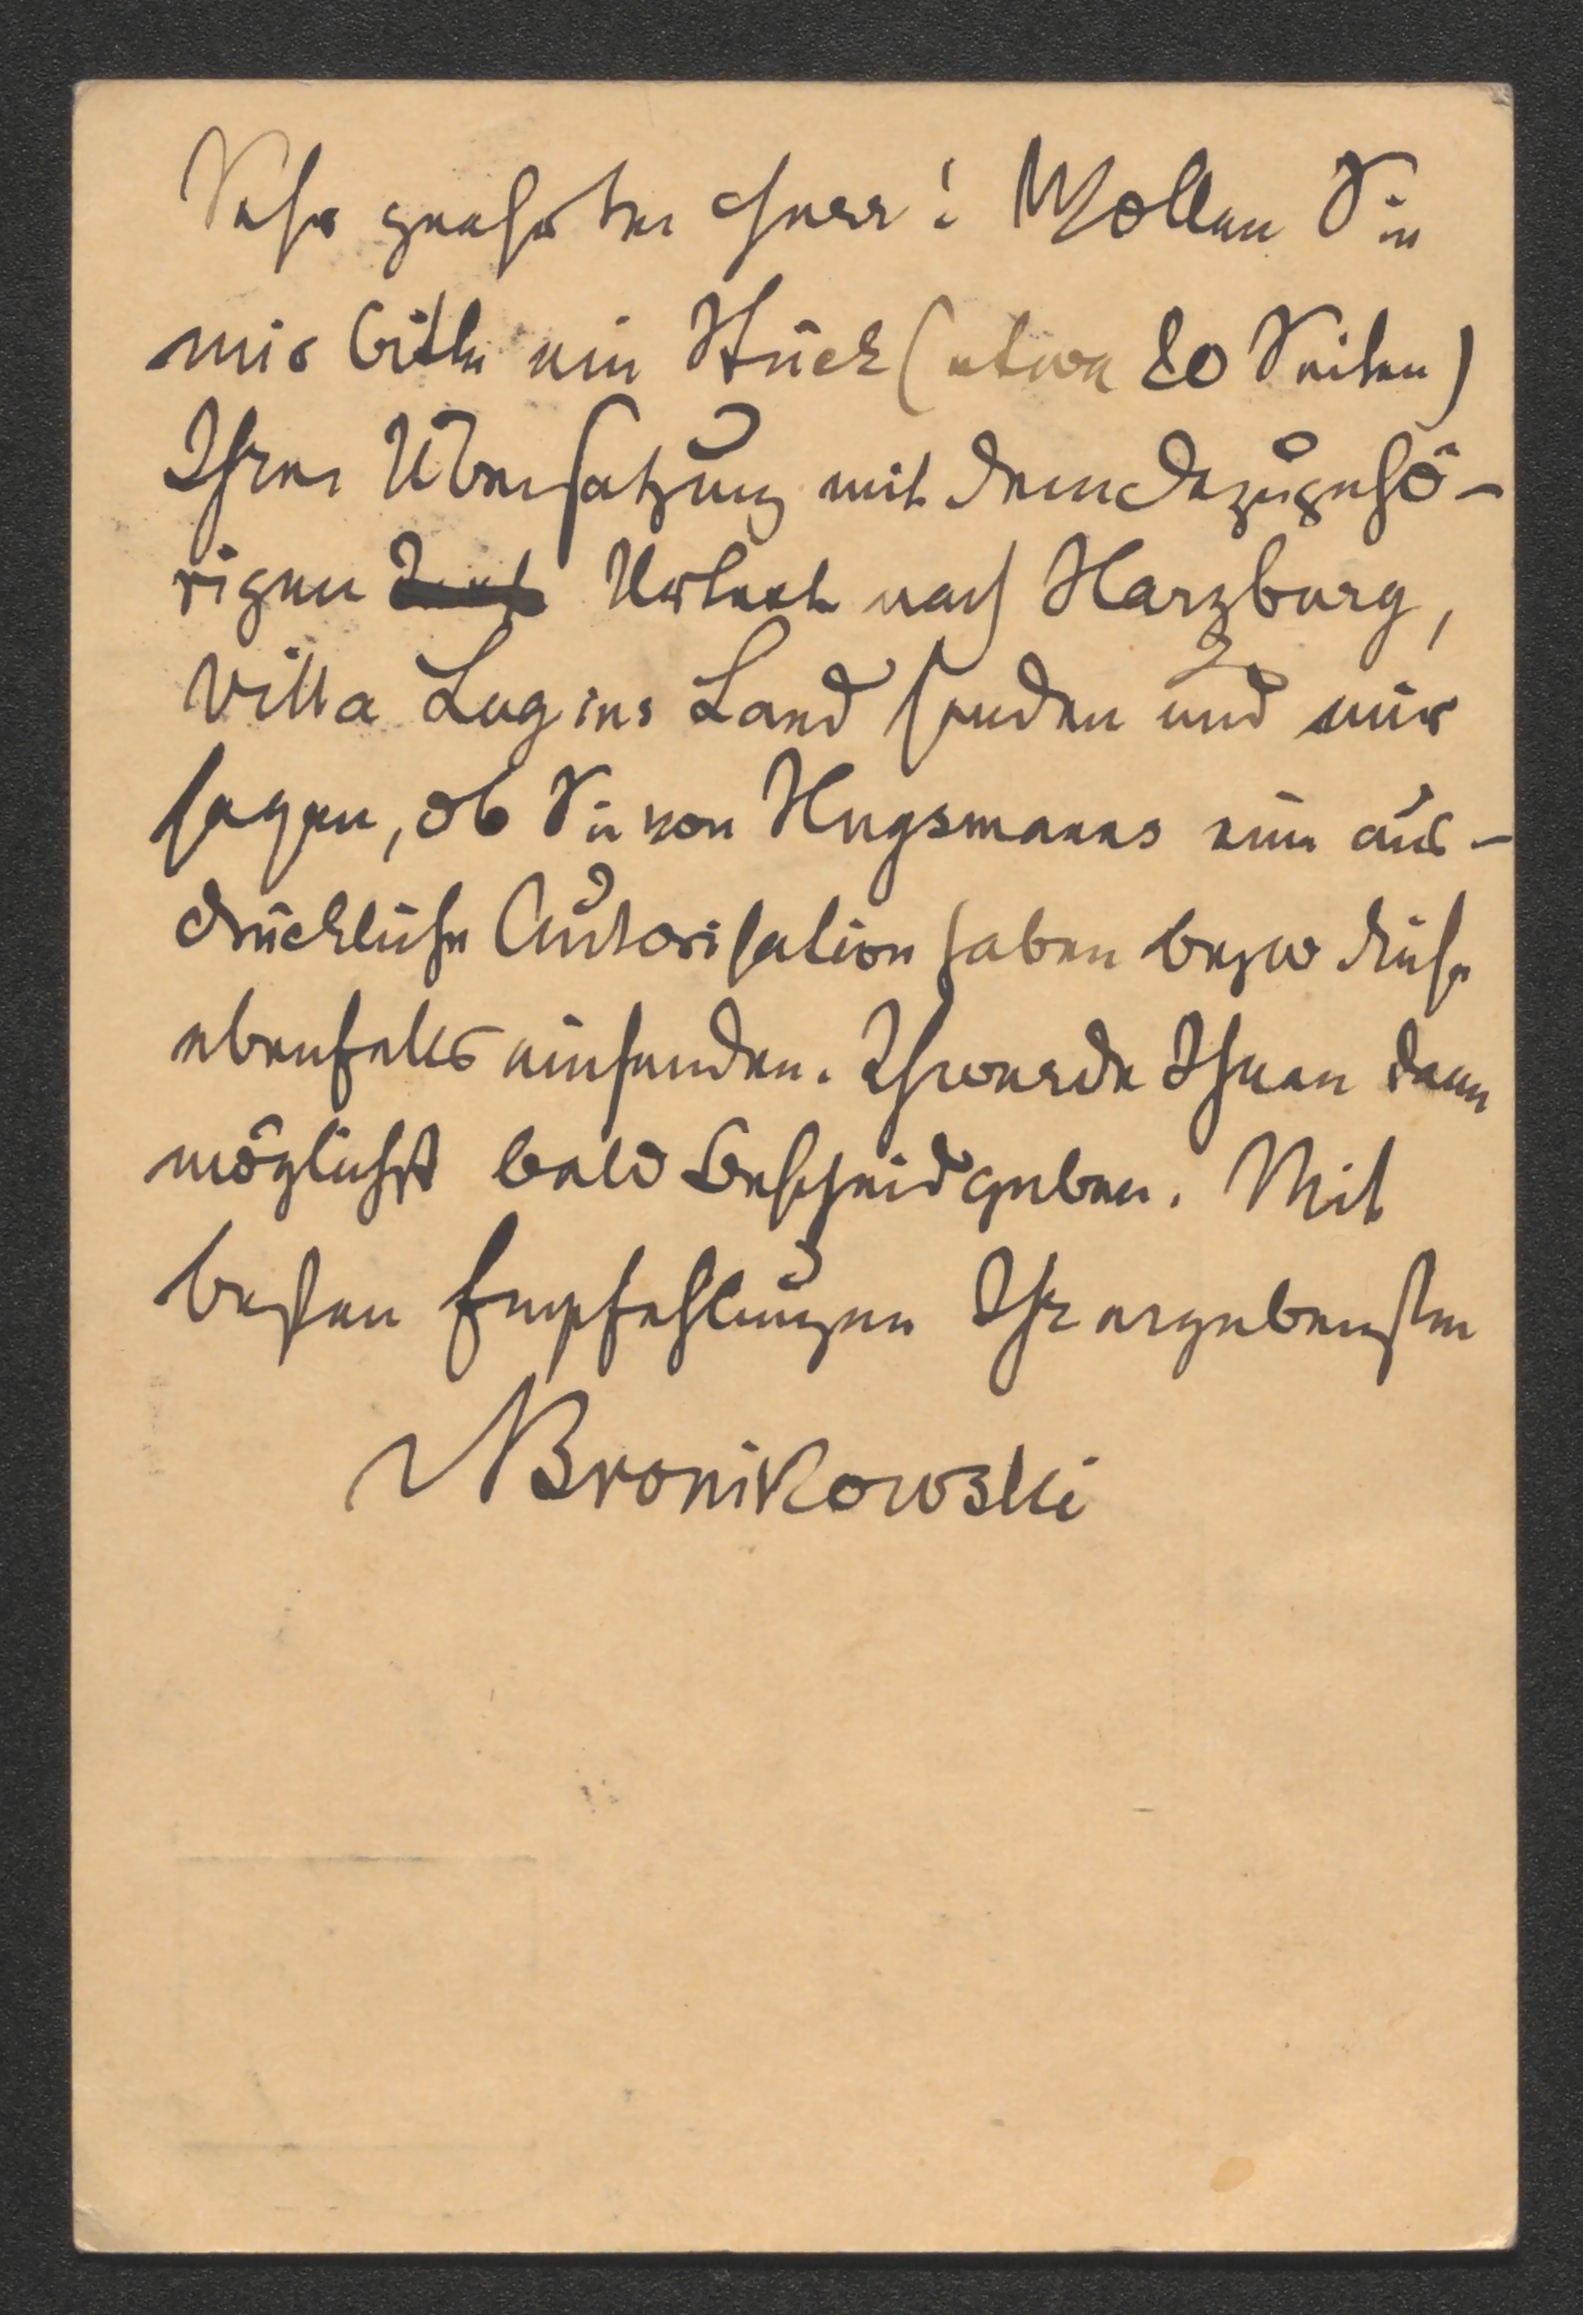 Sehr geehrter Herr! Wollen Sie
mir bitte ein Stück (etwa 20 Seiten)
Ihrer Übersetzung mit dem dazugehö-
rigen Urtext nach Harzburg,
Villa Lug ins Land senden und mir
sagen, ob Sie von Huysmanns eine aus-
drückliche Autorisation haben bezw diese
ebenfalls einsenden. Ich werde Ihnen dann
möglichst bald Bescheid geben. Mit
besten Empfehlungen Ihr ergebenster
Bronikowski